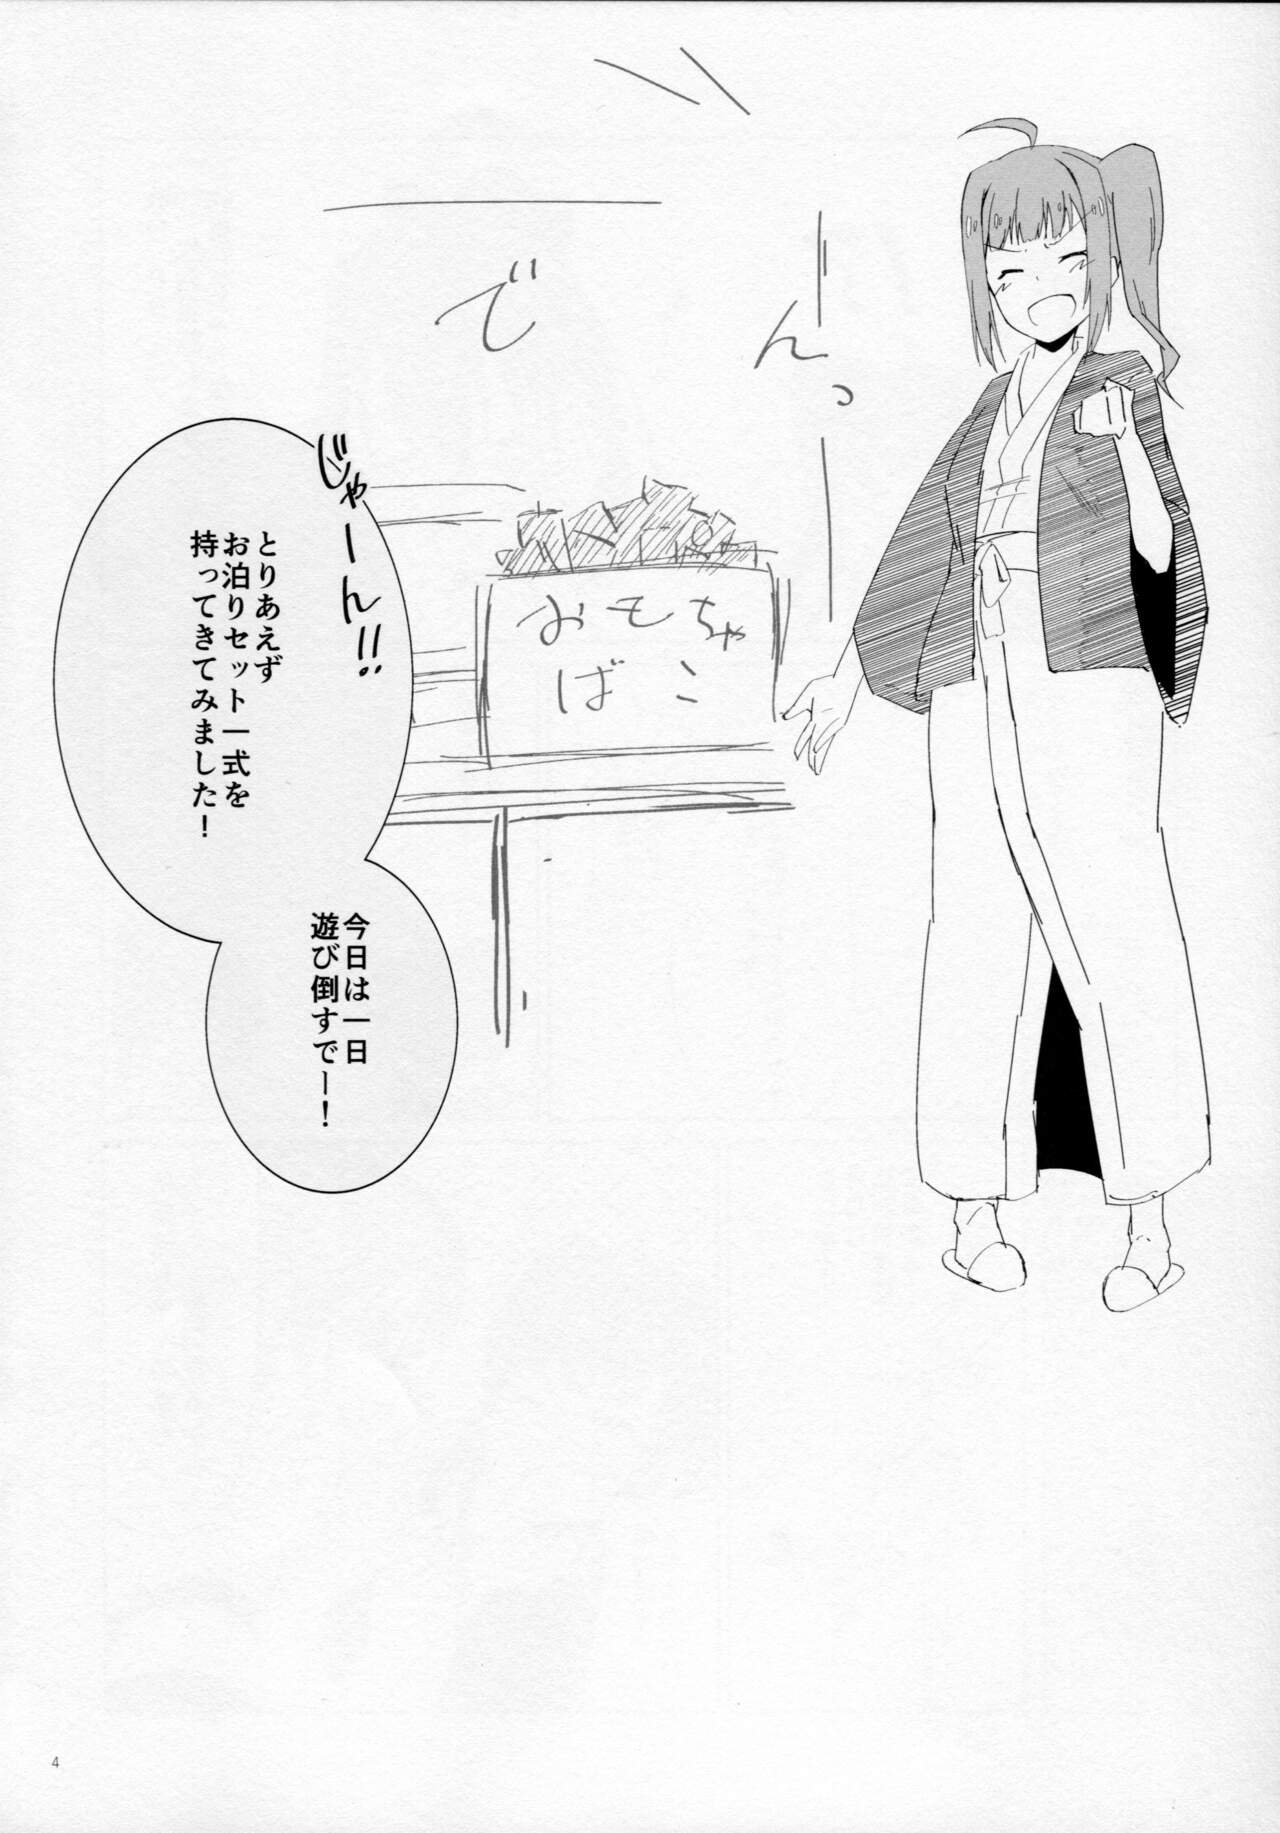 で
んっ
じゃーん!!
とりあえず
お泊りセット一式を
持ってきてみました!
おもちゃ
ばこ
今日は一日
遊び倒すでー!
4